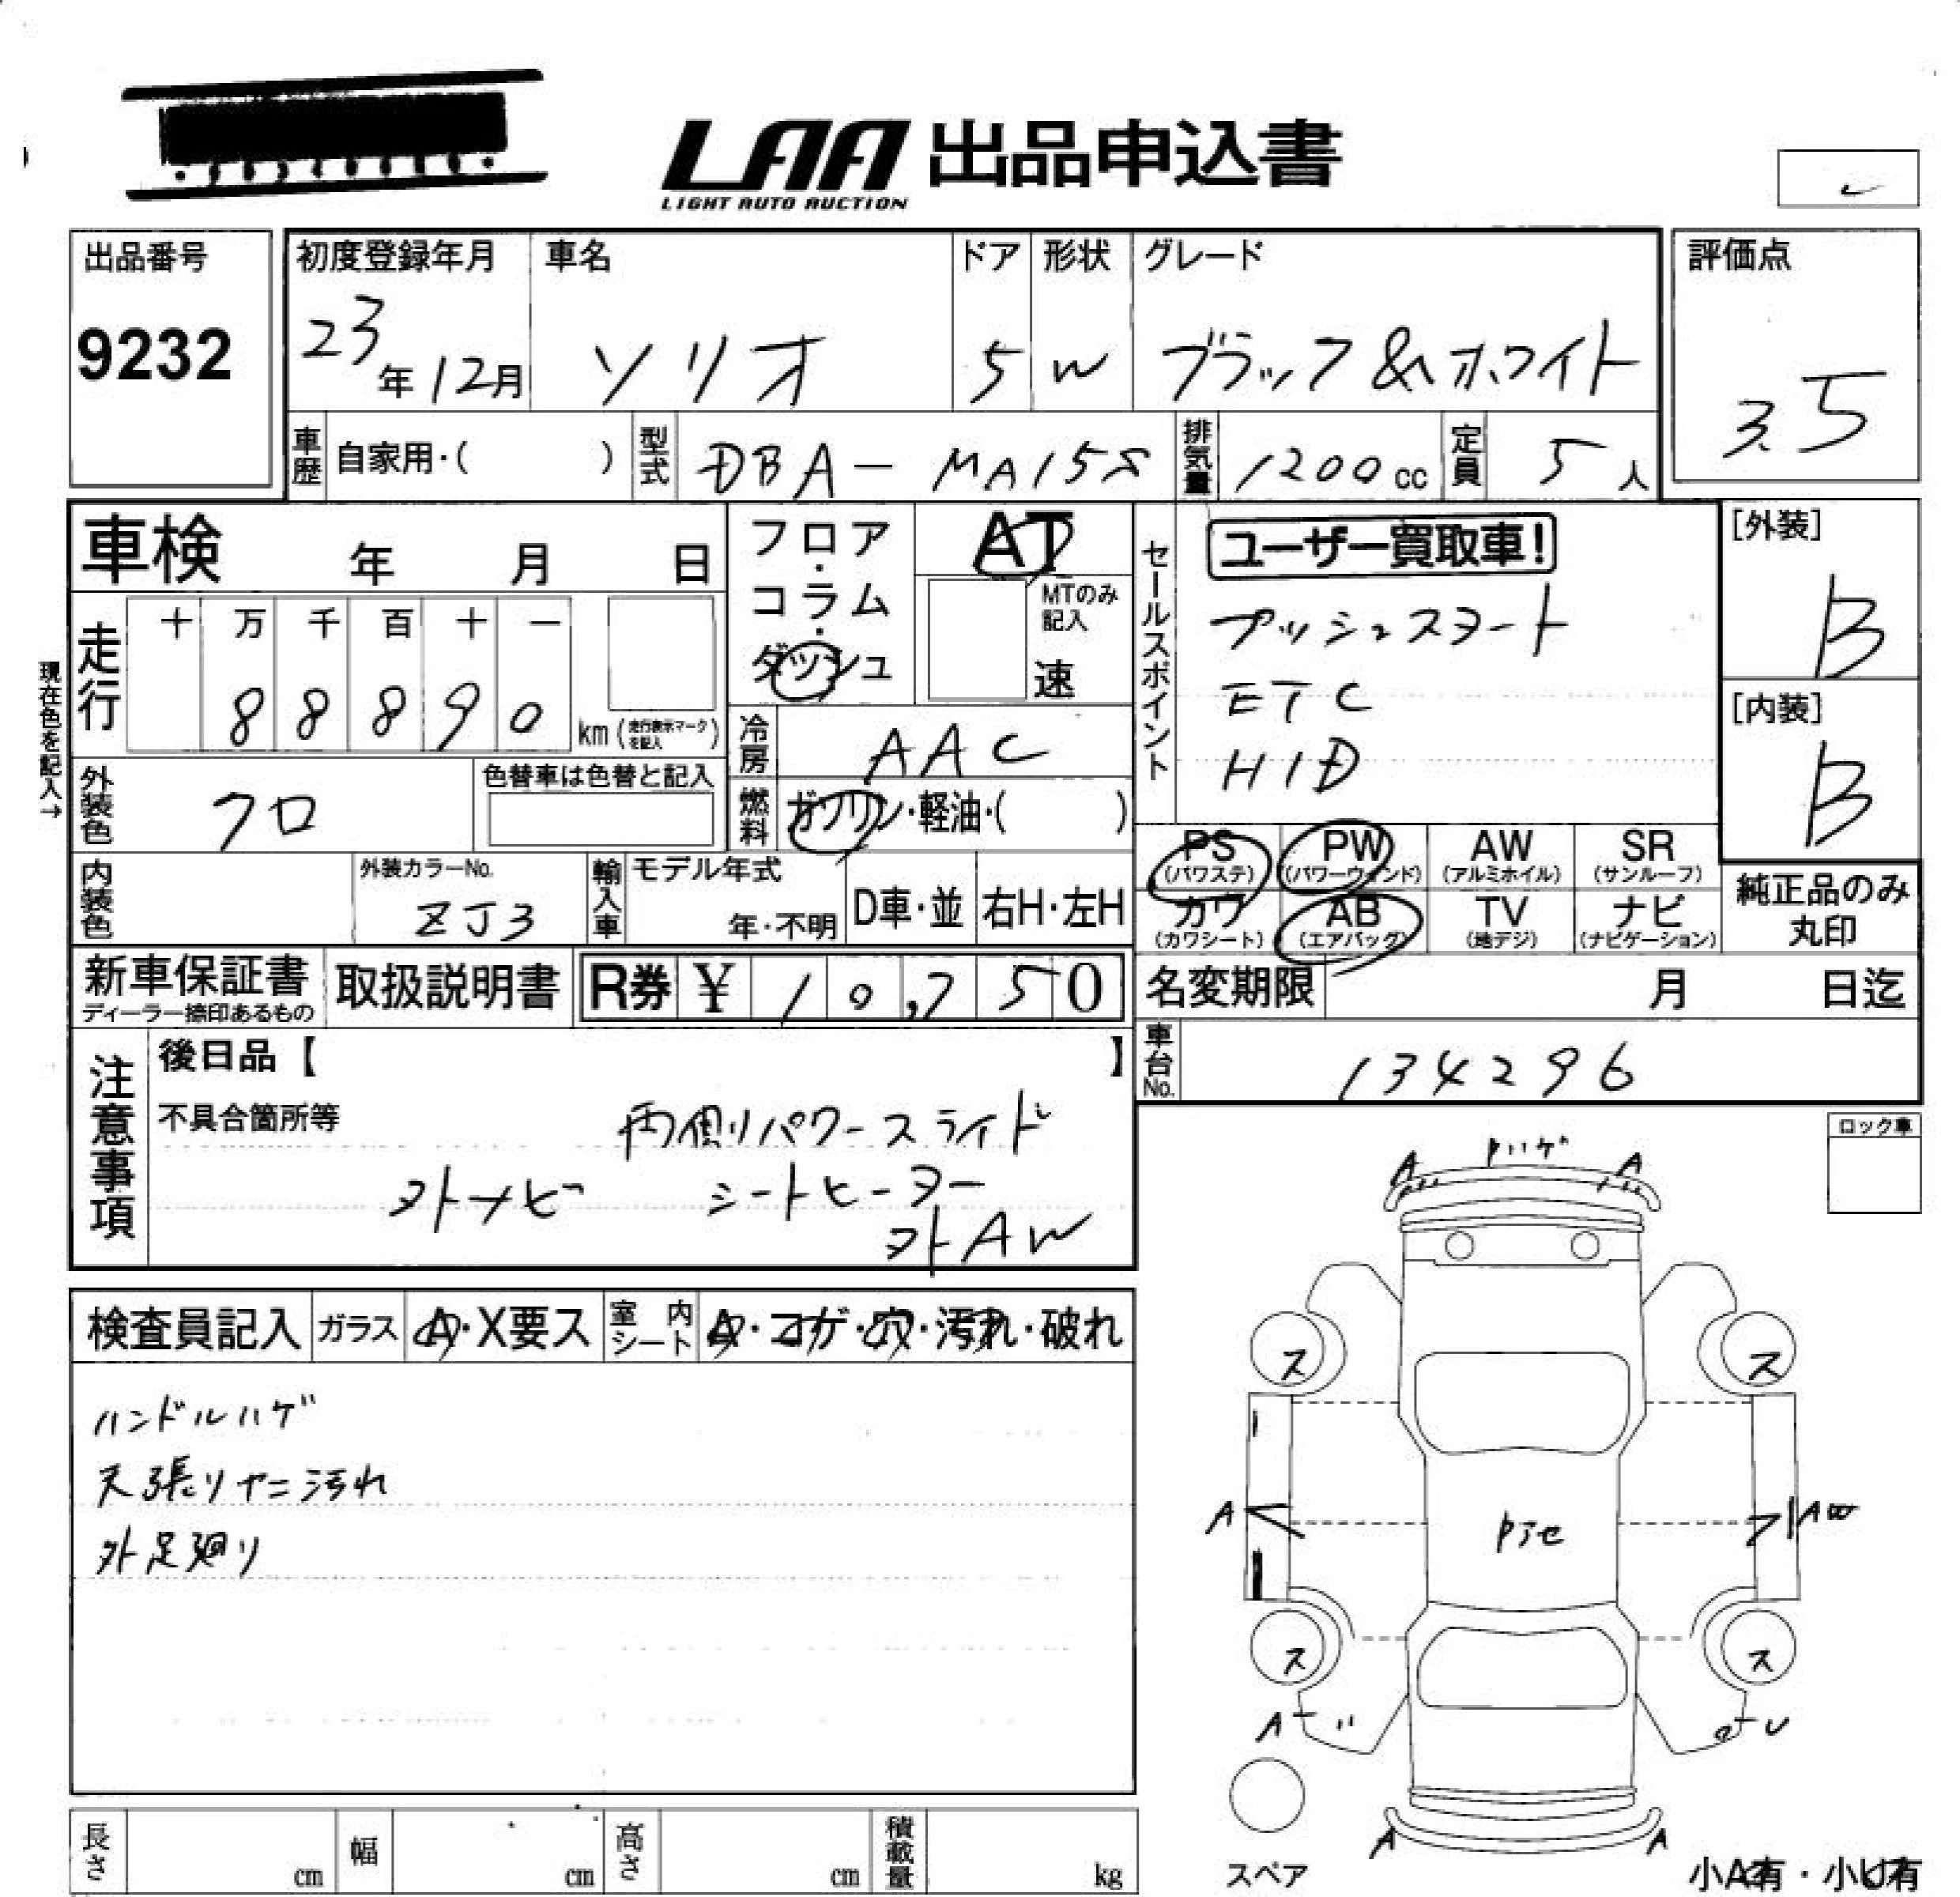 LAA 出品申込書
LIGHT AUTO AUCTION
出品番号
9232
初度登録年月
23年12月
車名
ソリオ
ドア
5
形状
W
グレード
ブラック&ホワイト
評価点
3.5
車歴 自家用・( )
型式 DBA-MA15S
排気量 1200cc
定員 5人
車検 年 月 日
フロア・コラム・ダッシュ
AT
MTのみ記入
速
セールスポイント
ユーザー買取車!
プッシュスタート
ETC
HID
[外装]
B
[内装]
B
現在色を記入→
走行
十 万 千 百 十 一
8 8 8 9 0 km (走行表示マークを記入)
冷房 AAC
外装色 クロ
色替車は色替と記入
燃料 ガソリン・軽油・( )
PS (パワステ)
PW (パワーウィンド)
AW (アルミホイル)
SR (サンルーフ)
カワ (カワシート)
AB (エアバッグ)
TV (地デジ)
ナビ (ナビゲーション)
純正品のみ丸印
内装色
外装カラーNo.
ZJ3
輸入車
モデル年式
年・不明
D車・並
右H・左H
新車保証書
ディーラー捺印あるもの
取扱説明書
R券 ¥ 10,750
名変期限 月 日迄
車台No. 134296
注意事項
後日品【 】
不具合箇所等
両側パワースライド
外ナビ シートヒーター
外AW
ロック車
検査員記入
ガラス A・X要ス
室内シート A・コゲ・穴・汚れ・破れ
ハンドルハゲ
天張りヤニ汚れ
外足廻り
ハゲ
A A
ス ス
A AW
アセ
ス ス
A U
A A
スペア
小A有・小U有
長さ cm
幅 cm
高さ cm
積載量 kg